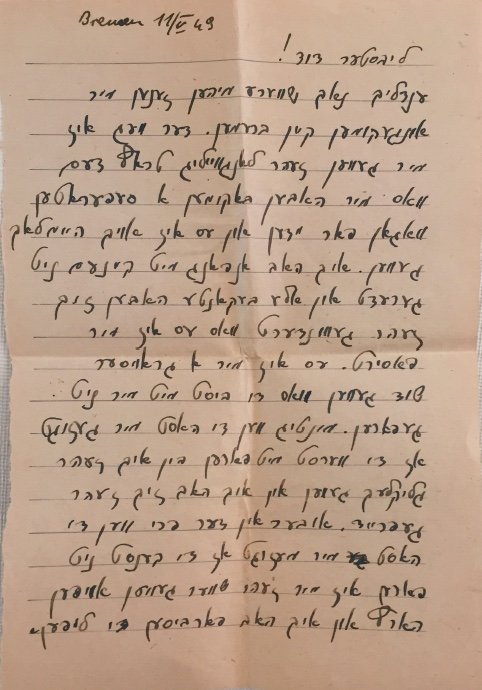 Bremen 11/V 49
ליבסטער דוד!
ענדליך נאך שווערע מיהען זענען מיר
אנגעקומען קיין ברעמען. דער וועג איז
מיר געווען זעהר לאנגווייליג טראץ דעם
וואס מיר האבען באקומען א סעפעראטען
וואגאן פאר און עס איז אויך היימלאך
געווען. איך האב אנפאנג מיט קיינעם ניט
גערעדט און אלע בעקאנטע האבען זיך
זעהר געוואונדערט וואס עס איז מיר
פאסירט. עס איז מיר א גרויסער
שוד געווען וואס די ביסט מיט מיר ניט
געפארען. מינטיג ווען די האסט מיר געזוגט
אז די ווערסט מיטפארען בין איך זעהר
גליקליך געווען און איך האב זיך זעהר
געפרייד. אובער אין דער פרי ווען די
האסט מיר געזוגט אז די קענסט ניט
פארען איז מיר זעהר שווער געווען אויפען
הארץ און איך האב פארביסען די ליפען